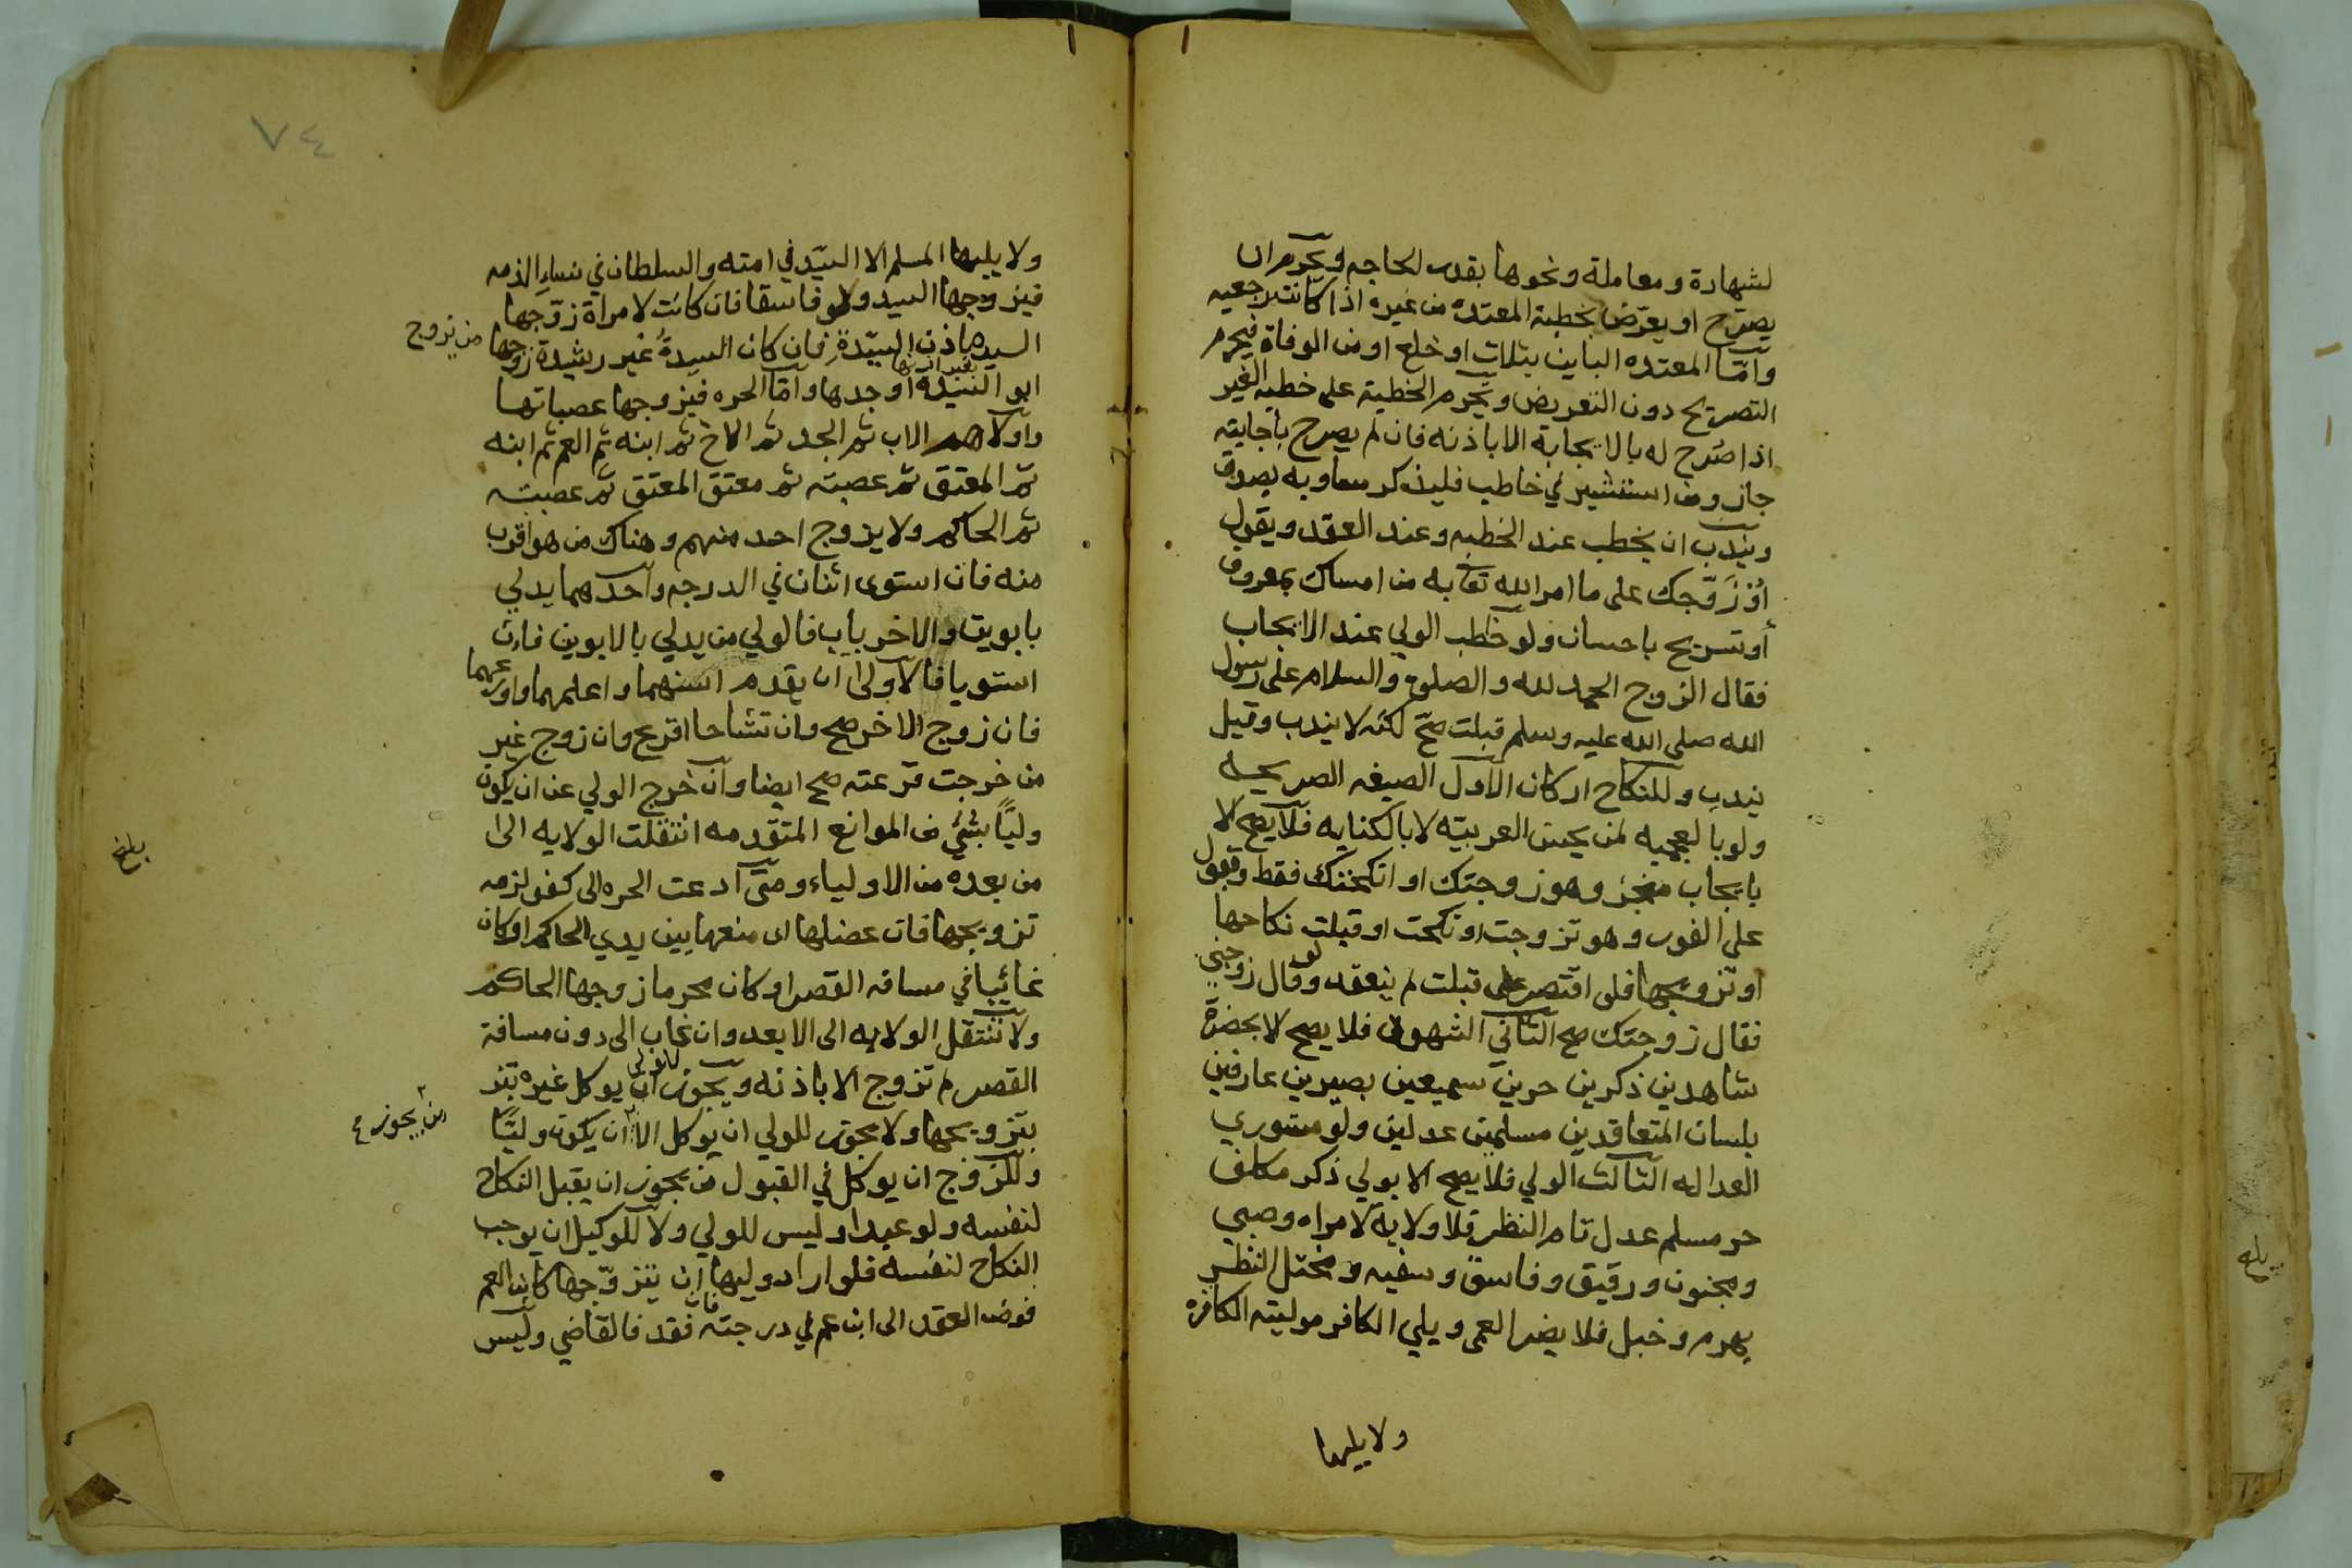 لشهادة ومعاملة ونحوها بقدر الحاجه ويحرم ان
يصرّح او يعرّض بخطبة المعتده من غيره اذا كانت رجعيه
وامّا المعتده الباين بثلاث او خلع او من الوفاة فيحرم
التصريح دون التعريض ويحرم الخطبة على خطبه الغير
اذا صُرح له بالاجابة الا باذنه فان لم يصرح باجابته
جاز ومن استشير في خاطب فليذكر مساويه بصدق
ويندب ان يخطب عند الخطبه وعند العقد ويقول
اُزَوّجك على ما امر الله تعا به من امساك بمعروف
أو تسريح باحسان ولو خطب الولي عند الايجاب
فقال الزوج الحمد لله والصلوة والسلام على رسول
الله صلى الله عليه وسلم قبلت صحّ لكنه لا يندب وقيل
يندب وللنكاح اركان الاول الصيغه الصريحه
ولو بالعجميه لمن يحسن العربيّه لا بالكنايه فلا يصح الا
بايجاب منجز وهو زوجتك او انكحتك فقط وقبول
على الفور وهو تزوجت او نكحت او قبلت نكاحها
او تزويجها فلو اقتصر على قبلت لم ينعقد ولو قال زوجني
فقال زوجتك صح الثاني الشهود فلا يصح الا بحضرة
شاهدين ذكرين حرين سميعين بصيرين عارفين
بلسان المتعاقدين مسلمين عدلين ولو مستوري
العداله الثالث الولي فلا يصح الا بولي ذكر مكلف
حر مسلم عدل تام النظر فلا ولاية لامراه وصبي
ومجنون ورقيق وفاسق وسفيه ومختل النظر
بهرم وخبل فلا يضر العمى ويلي الكافر موليته الكافره
ولا يليها
٧٤
ولا يليها المسلم الا السيّد في امته والسلطان في نساء الذمه
فيزوجها السيد ولو فاسقا فان كانت لامراة زوّجها
من يزوج
السيده باذن السيّدة فان كان السيدةُ غير رشيدة زوجها
ابو السيّده او جدها وامّا الحره فيزوجها عصباتها
واولاهم الاب ثم الجد ثم الاخ ثم ابنه ثم العم ثم ابنه
ثم المعتق ثم عصبته ثم معتق المعتق ثم عصبته
ثم الحاكم ولا يزوج احد منهم وهناك من هو اقرب
منه فان استوى اثنان في الدرجه واحدهما يدلي
بابوين والاخر باب فالولي من يدلي بالابوين فان
استويا فالاولى ان يقدم اسنهما واعلمهما واورعهما
فان زوج الاخر صح وان تشاحا اقرع وان زوج غير
من خرجت قرعته صح ايضا وان خرج الولي عن ان يكون
وليًا بشئ من الموانع المتقدمه انتقلت الولايه الى
من بعده من الاولياء ومتى ادعت الحره الى كفو لزمه
تزويجها فان عضلها اى منعها بين يدي الحاكم او كان
غائبا في مسافه القصر او كان محرما زوجها الحاكم
ولا تنتقل الولايه الى الابعد وان غاب الى دون مسافة
القصر لم تزوج الا باذنه ويجوز للولي ان يوكل غيره بتز
بتزويجها ولا يجوز للولي ان يوكل الا ان يكون وليًّا
من يجوز
وللزوج ان يوكل في القبول من يجوز ان يقبل النكاح
لنفسه ولو عبدا وليس للولي ولا للوكيل ان يوجب
النكاح لنفسه فلو اراد وليها ان يتزوّجها كابن العم
فوض العقد الى ابن عم في درجته فان فقد فالقاضي وليس
بلغ
بلغ